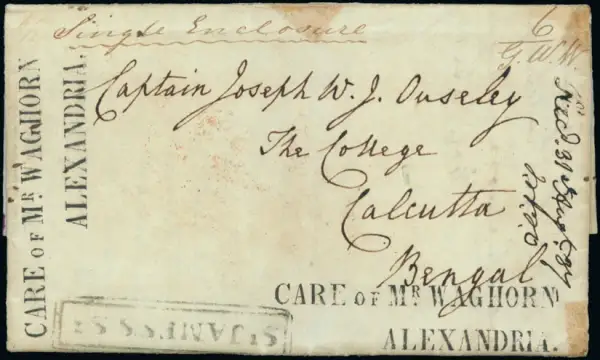 Single Enclosure
6
G.W.W.
Captain Joseph W. J. Ouseley
The College
Calcutta
Bengal
CARE OF MR WAGHORN
ALEXANDRIA.
CARE OF MR WAGHORN
ALEXANDRIA.
Recd. 31
St JAMES'S St